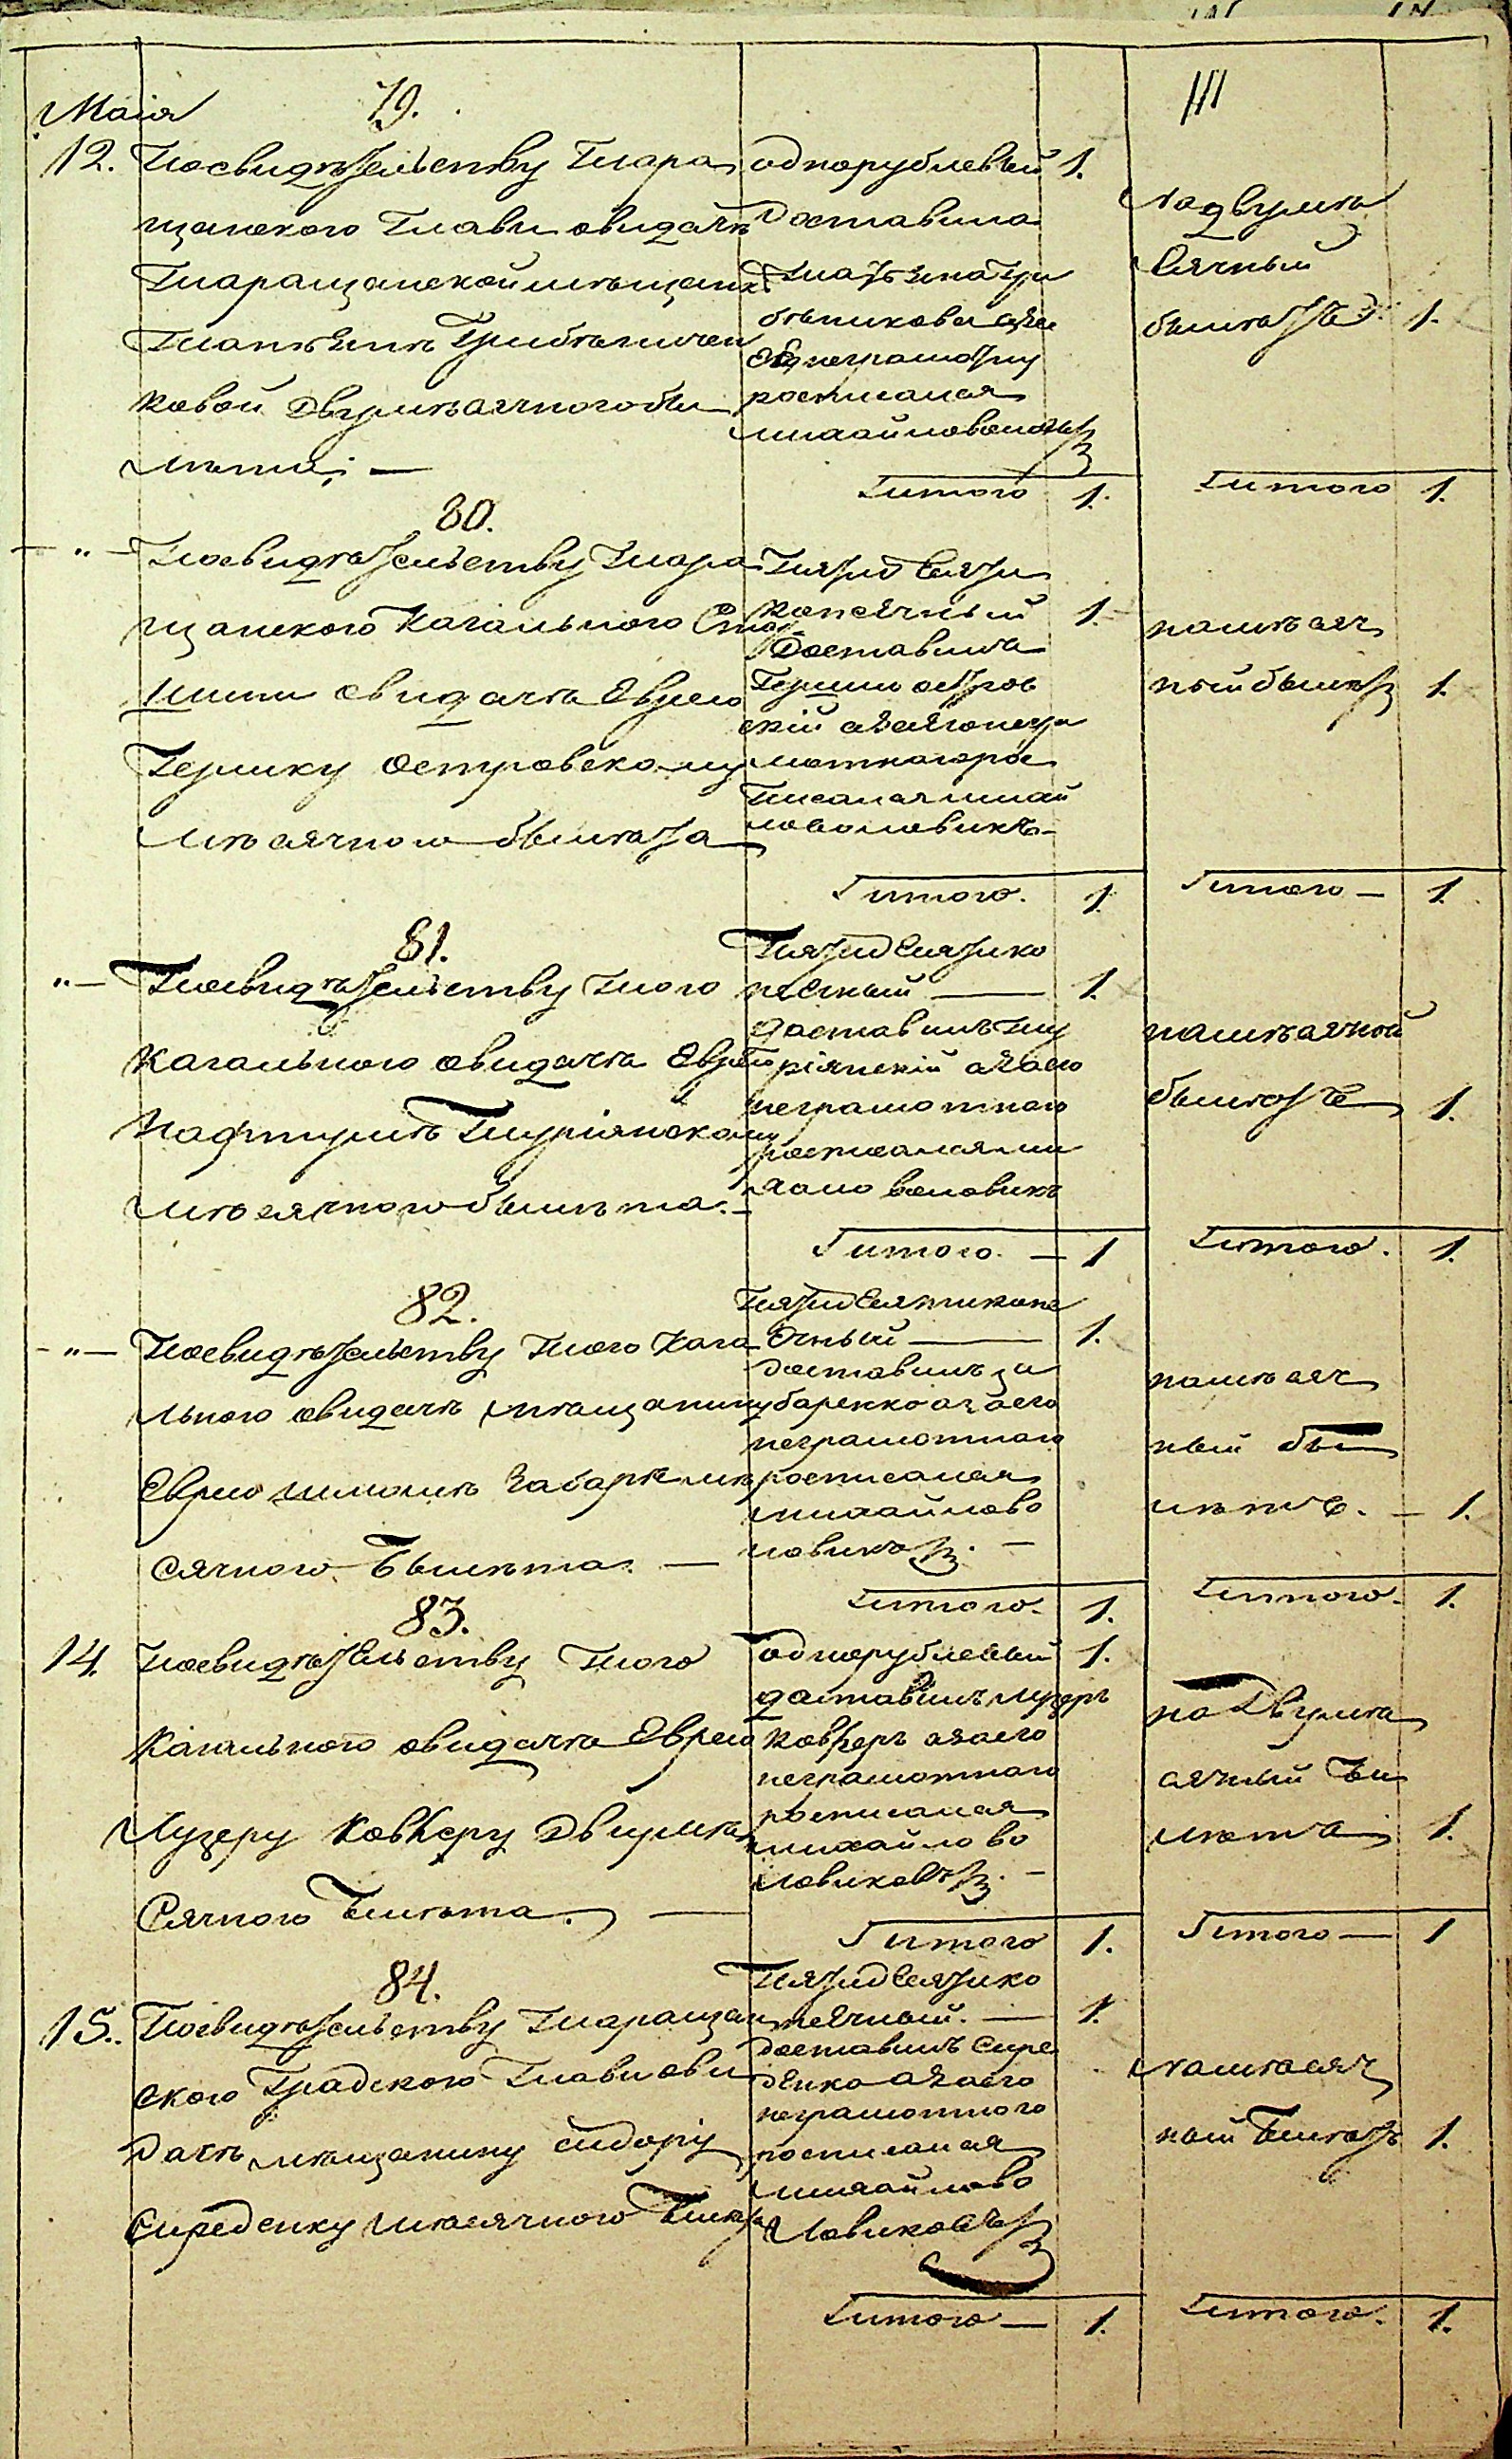 Маія
79.
12. По свидѣтельству Тара
щанского Главы овидачѣ
Таращанской мѣщанкѣ
Татьянѣ Грибѣничен
ковой двумѣсячного би
лѣта; —
однорублевый 1.
Доставила
Татьяна Гри
бѣникова а за
неграмотну
росписался
на двумѣ
сячный
билѣтъ 1.
Итого 1.
Итого 1.
80.
— " — По свидѣтельству Тара
щанского Кагального Стар
шини овидачѣ Еврею
Гершку Островскому
мѣсячного билѣта
Пятидесяти
копѣячный 1.
Доставилъ
Гершко остров
скій а за его негра
мотного рос
писался михай
ло воловикъ
на мѣсяч
ный билѣтъ 1.
Итого. 1.
Итого — 1.
81.
" — По свидѣтельству того
Кагального овидачѣ Еврею
Нафтулѣ Турiянскому
мѣсячного билѣта. —
Пятидесятико
пѣечный — 1.
доставилъ Ту
ріянскій а за его
неграмотного
росписался ми
хайло воловикъ
на мѣсячной
билѣтъ 1.
Итого. — 1
Итого. 1.
82.
— " — По свидѣтельству того Кага
льного овидачѣ мѣщанину
Еврею
сячного Билѣта. —
Пятидесятикопѣ
ечный — 1.
доставилъ за
баренко а за его
неграмотного
росписался
михайло во
ловикъ. —
на мѣсяч
ный би
лѣтъ. — 1.
Итого. 1.
Итого. 1.
83.
14. По свидѣтельству того
Кагального овидачѣ Еврею
Лузеру Ковнеру Двумѣ
Сячного Билѣта. —
однорублевый 1.
доставилъ Лузеръ
Ковнеръ а за его
неграмотного
росписался
михайло во
ловиковъ. —
на Двумѣ
сячный Би
лѣтъ 1.
Итого 1.
Итого — 1
84.
15. По свидѣтельству Таращан
ского Градского Главы ови
дачѣ мѣщанину Сидору
Середенку мѣсячного Билѣта
Пятидесятико
пѣячный. — 1.
доставилъ Сере
денко а за его
неграмотного
росписался
михайло во
ловиковъ
на мѣсяч
ной Билѣтъ 1.
Итого — 1.
Итого. 1.